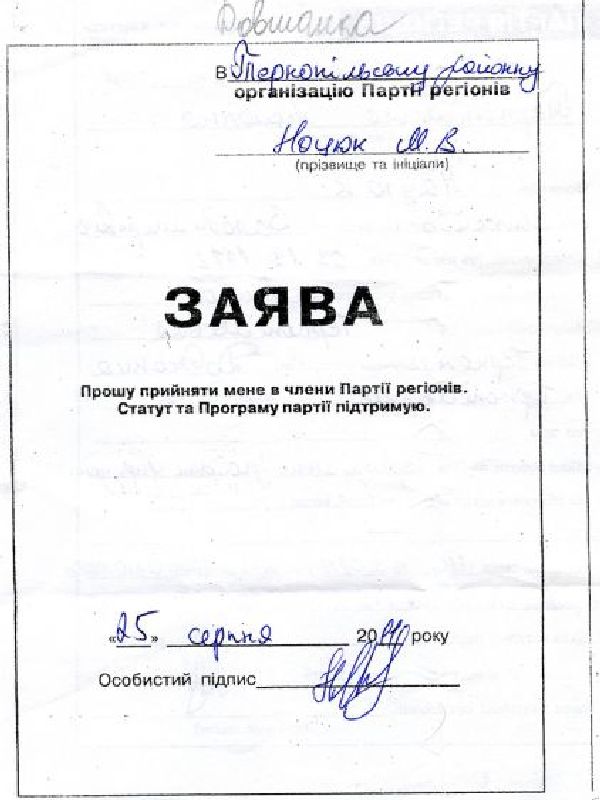 Довжанка
В Тернопільську районну
організацію Партії регіонів
Ноцюк М.В.
(прізвище та ініціали)
ЗАЯВА
Прошу прийняти мене в члени Партії регіонів.
Статут та Програму партії підтримую.
«25» серпня 2010 року
Особистий підпис